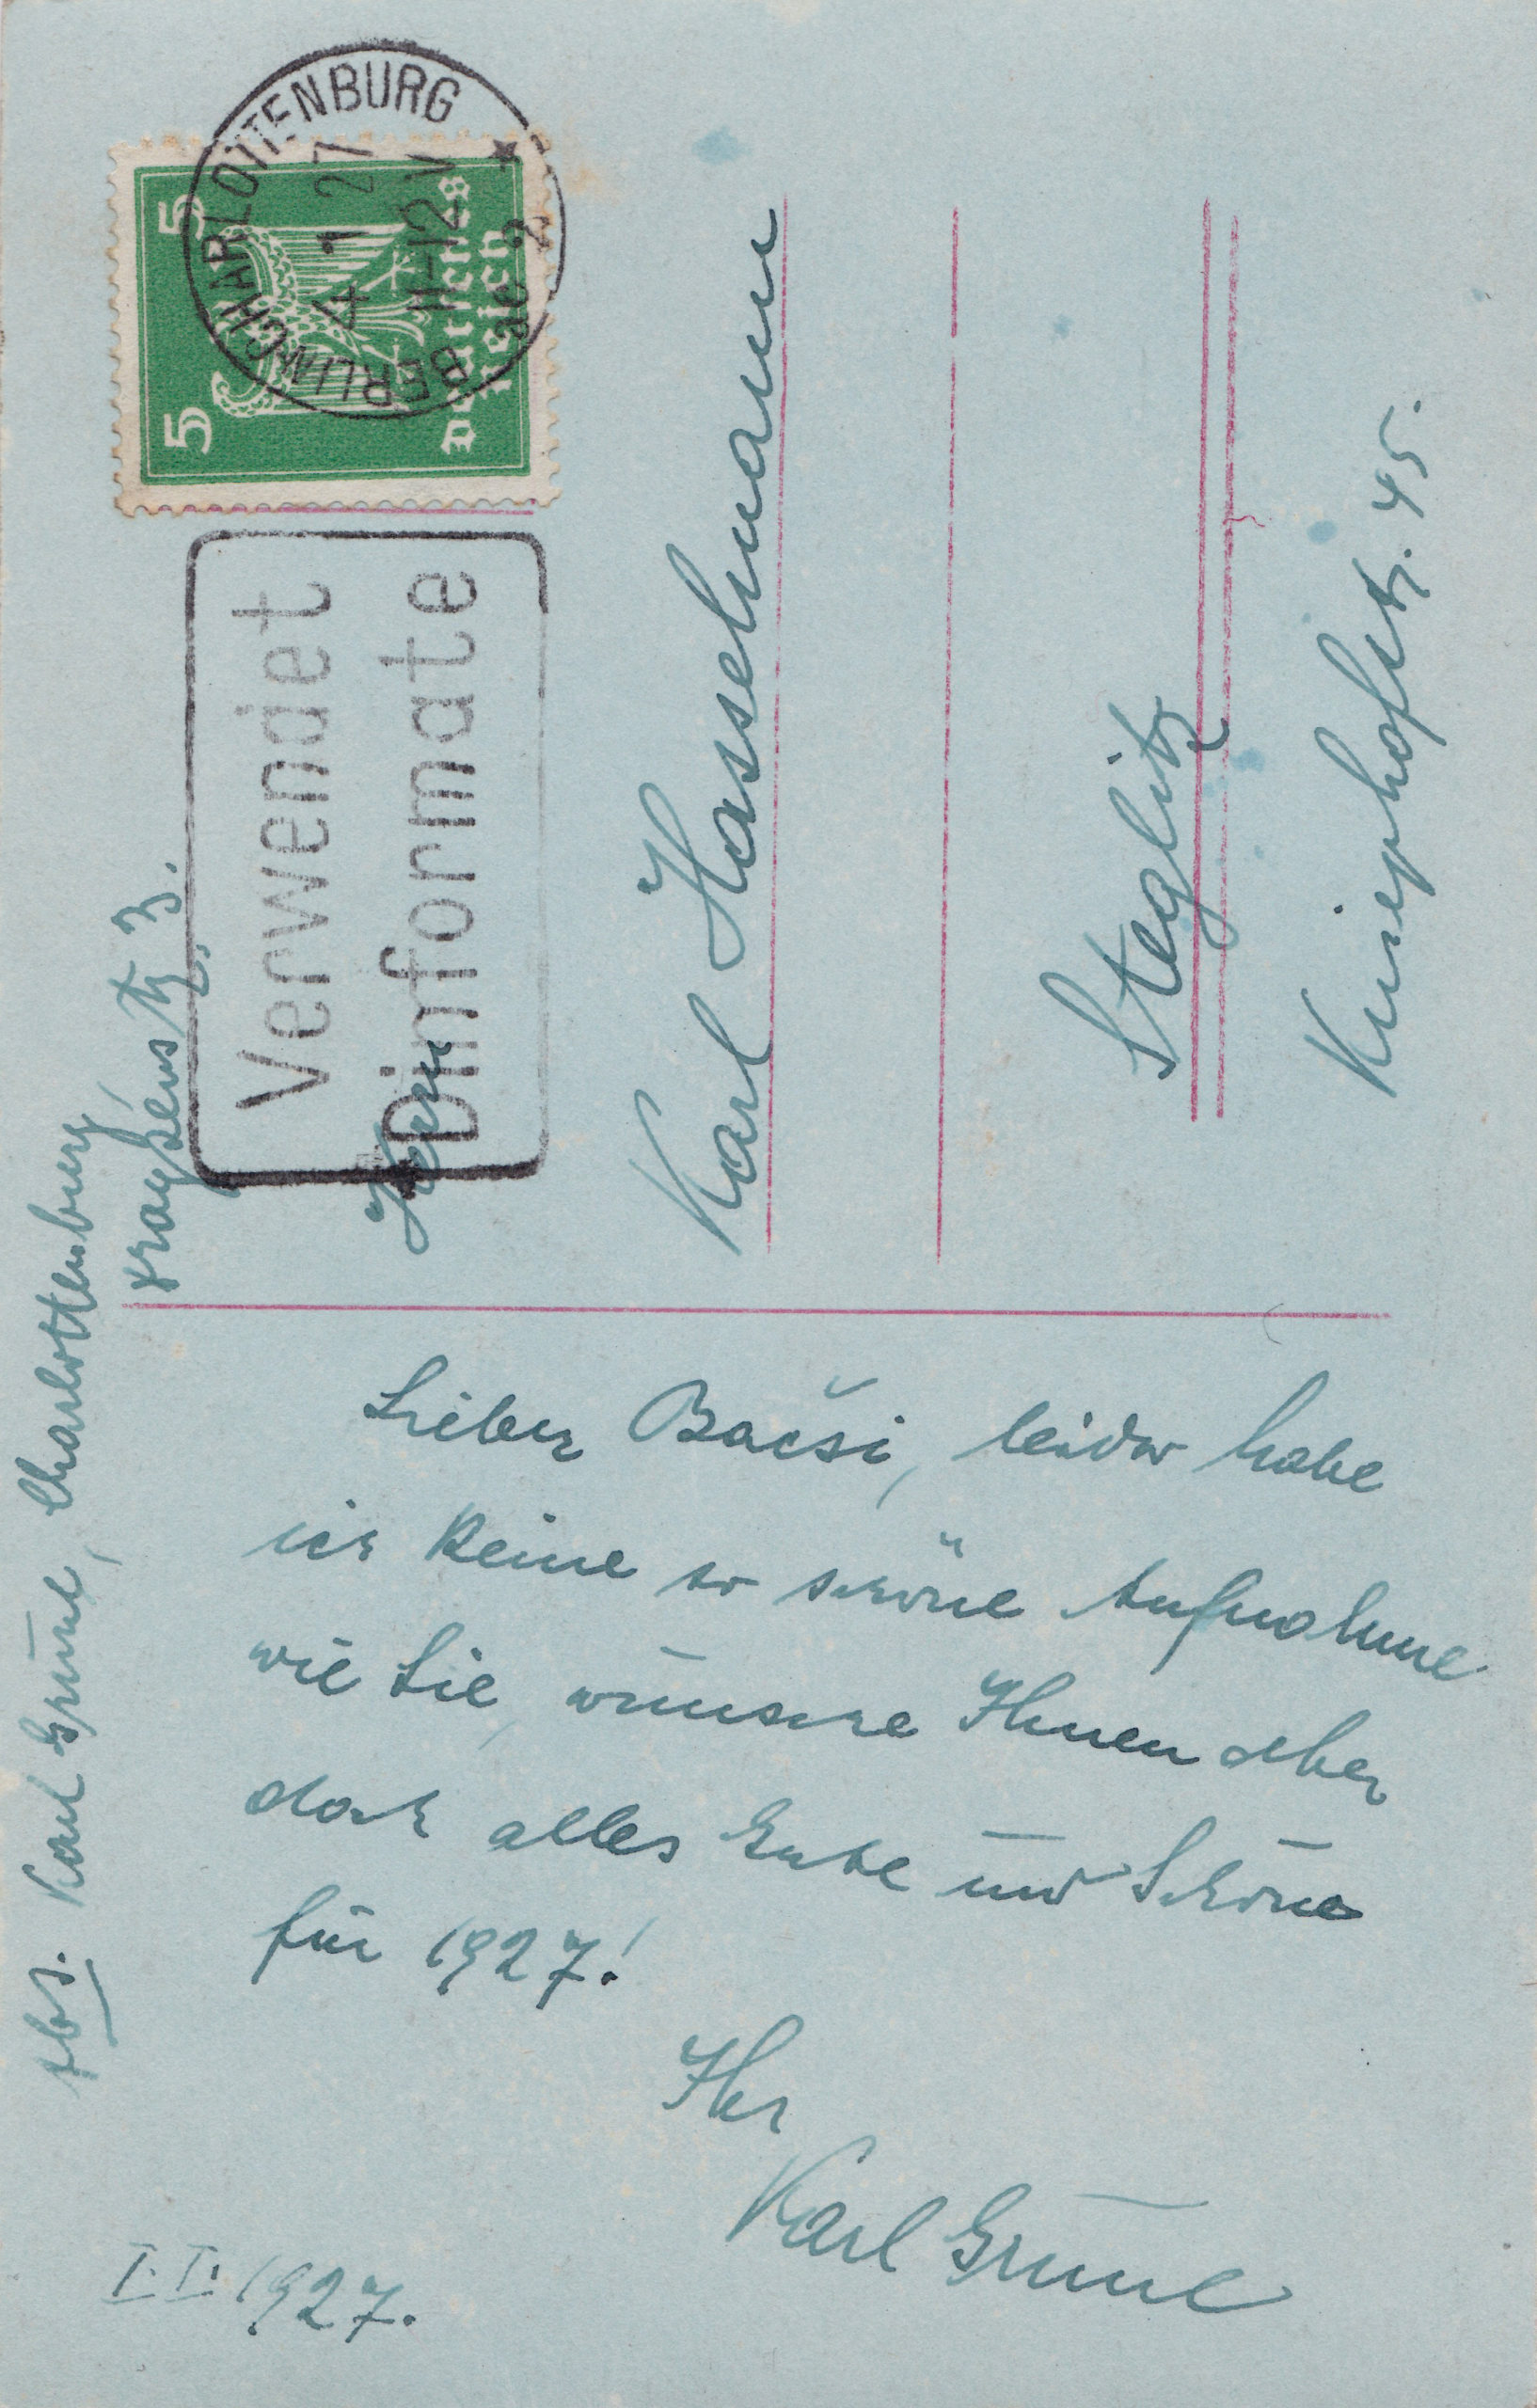 Abs. Karl Grune, Charlottenburg
3.
BERLIN-CHARLOTTENBURG 2
4 1 27
11-12 V
* 2 ae
5 5
Deutsches
Reich
Verwendet
Dinformate
Herrn
Karl Hasselmann
Steglitz
Kniephofstr. 45.
Lieber Bačsi, leider habe
ich keine so schöne Aufnahme
wie Sie, wünsche Ihnen aber
doch alles Gute und Schöne
für 1927!
Ihr
Karl Grune
I. I. 1927.